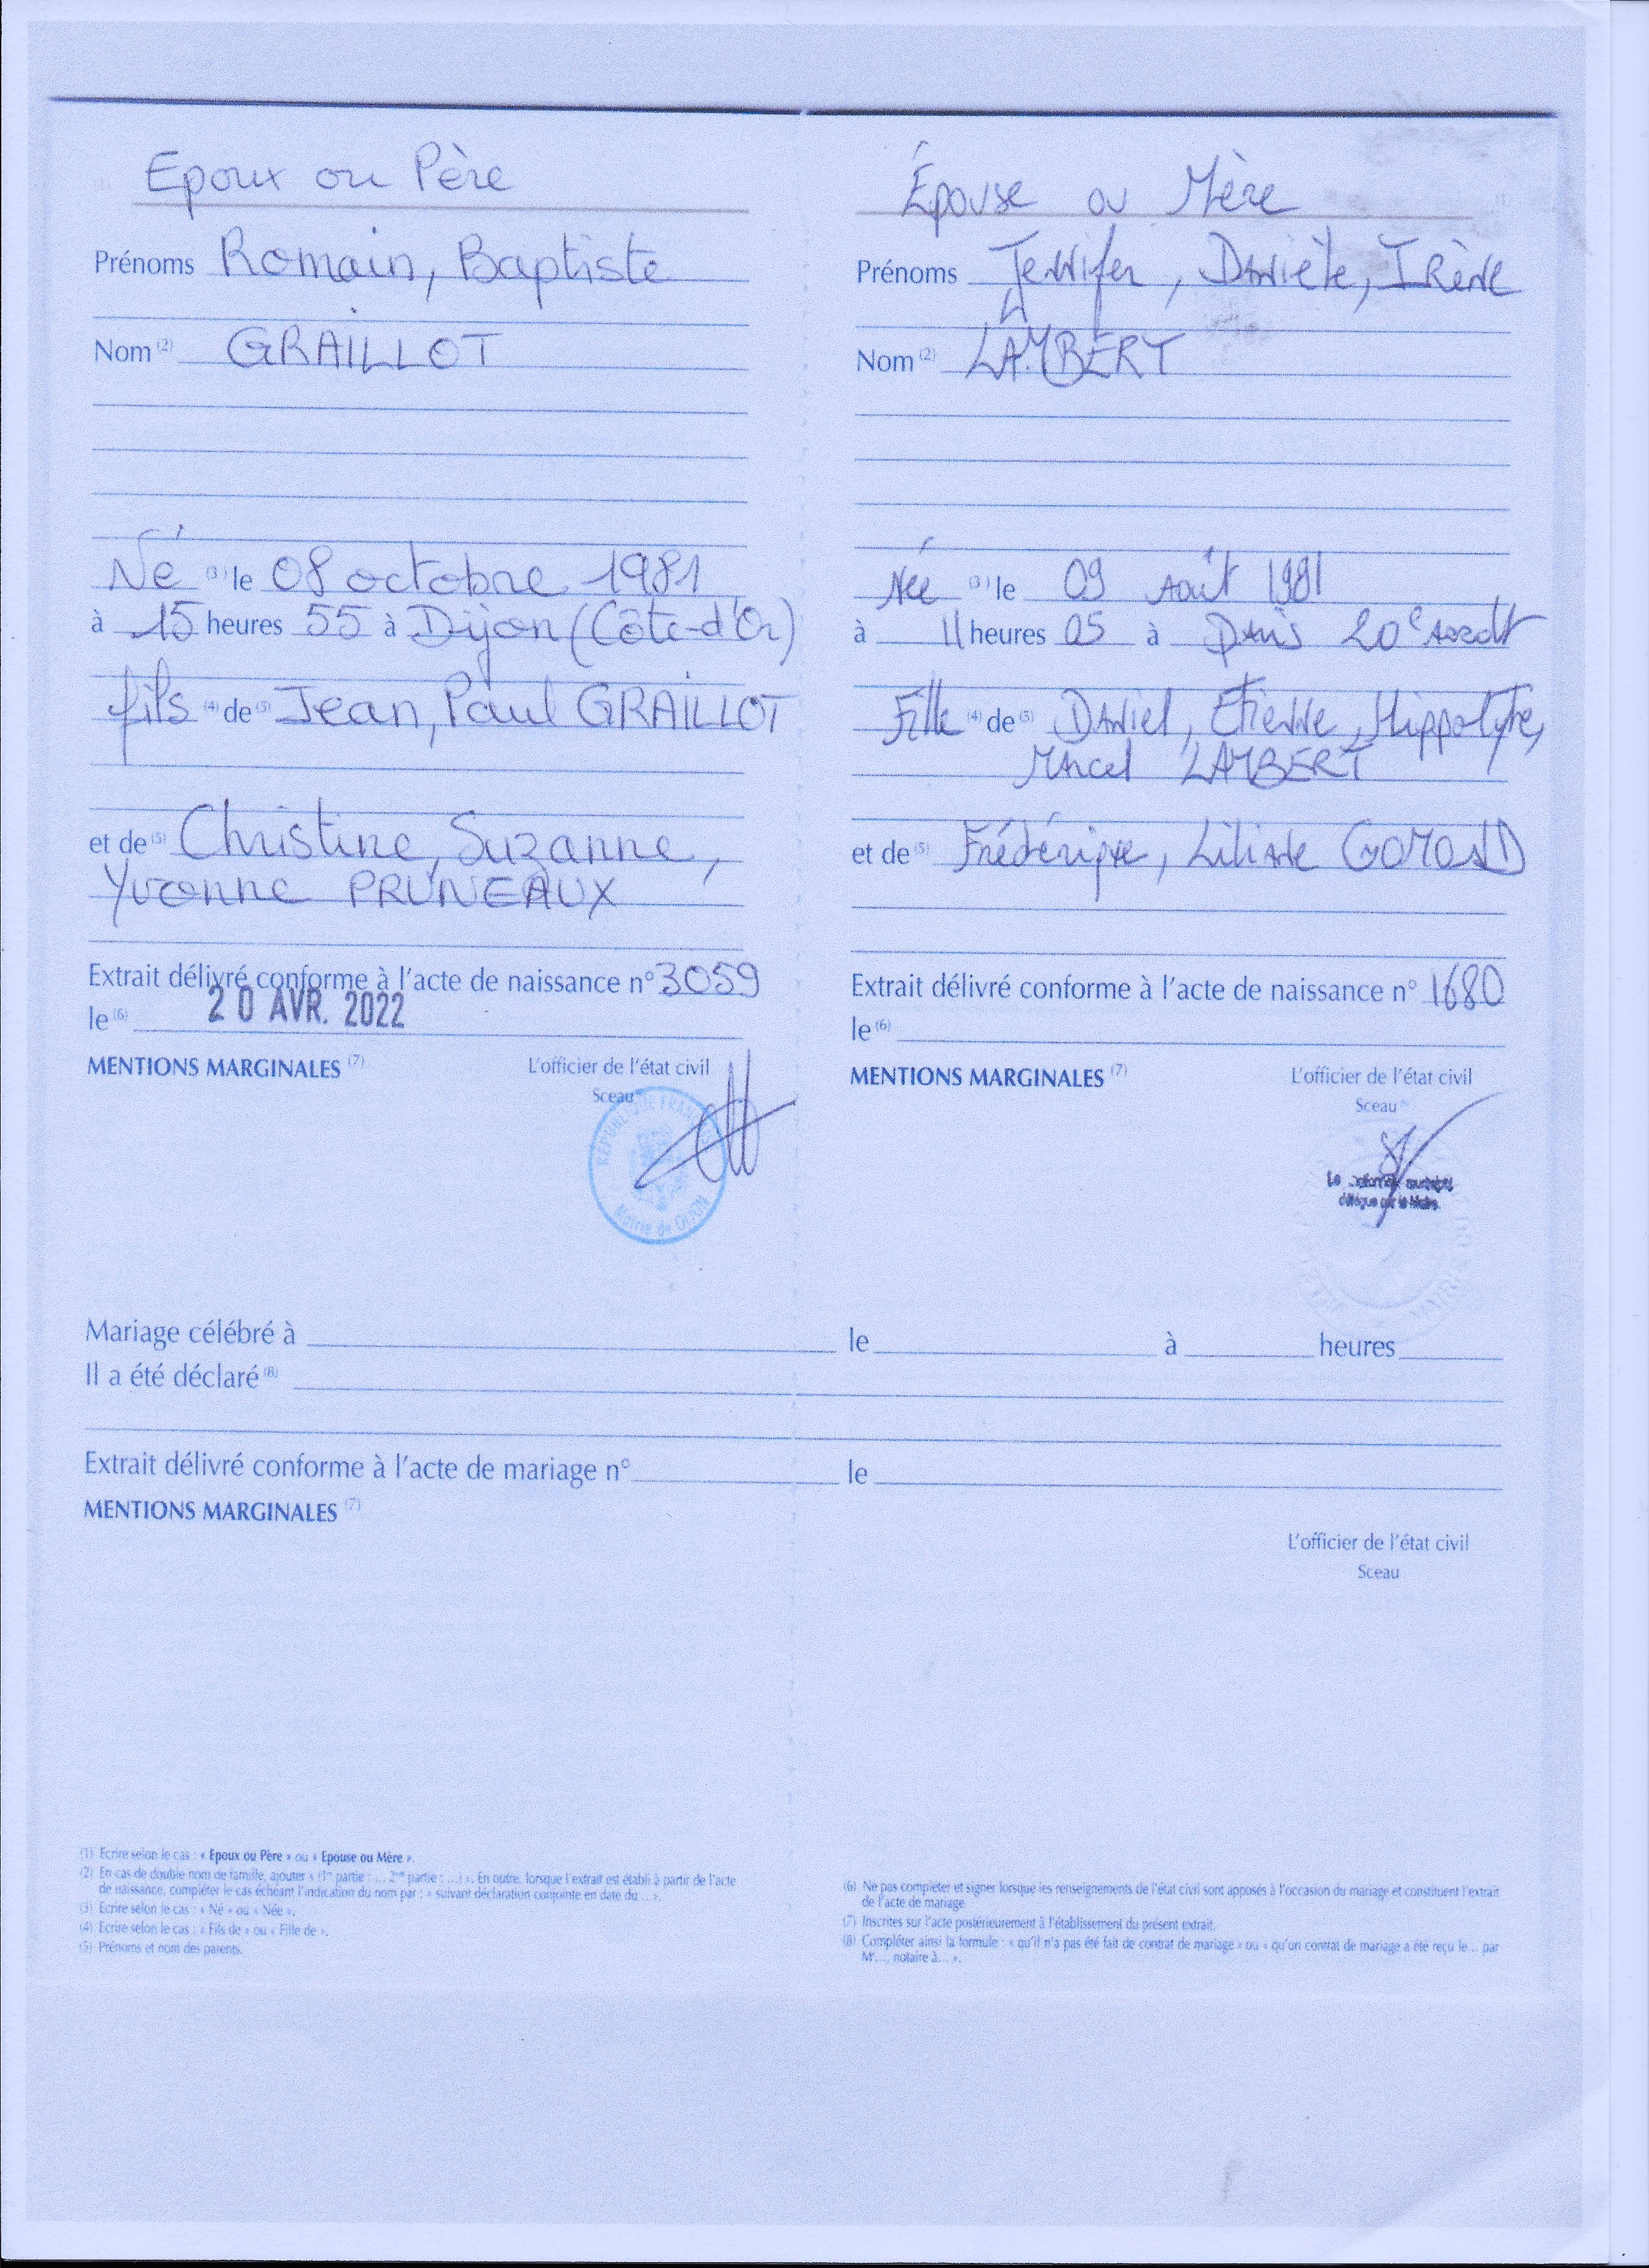 Epoux ou Père
Prénoms Romain, Baptiste
Nom (2) GRAILLOT
Né (3) le 08 octobre 1981
à 15 heures 55 à Dijon (Côte-d'Or)
fils (4) de (5) Jean, Paul GRAILLOT
et de (5) Christine, Suzanne,
Yvonne PRUNEAUX
Extrait délivré conforme à l'acte de naissance n° 3059
le (6) 20 AVR. 2022
MENTIONS MARGINALES (7)
L'officier de l'état civil
Sceau
RÉPUBLIQUE FRANÇAISE
Mairie de DIJON
Épouse ou Mère
Prénoms Jennifer, Danièle, Irène
Nom (2) LAMBERT
Née (3) le 09 Août 1981
à 11 heures 05 à Paris 20e Arrdt
Fille (4) de (5) Daniel, Etienne, Hippolyte,
Marcel LAMBERT
et de (5) Frédérique, Liliane
Extrait délivré conforme à l'acte de naissance n° 1680
le (6)
MENTIONS MARGINALES (7)
L'officier de l'état civil
Sceau
délégué par le Maire
Mariage célébré à le à heures
Il a été déclaré (8)
Extrait délivré conforme à l'acte de mariage n° le
MENTIONS MARGINALES (7)
L'officier de l'état civil
Sceau
(1) Ecrire selon le cas : « Epoux ou Père » ou « Epouse ou Mère ».
(2) En cas de double nom de famille, ajouter « (1re partie : ... 2nde partie : ...) ». En outre, lorsque l'extrait est établi à partir de l'acte
de naissance, compléter le cas échéant l'indication du nom par : « suivant déclaration conjointe en date du ... ».
(3) Ecrire selon le cas : « Né » ou « Née ».
(4) Ecrire selon le cas : « Fils de » ou « Fille de ».
(5) Prénoms et nom des parents.
(6) Ne pas compléter et signer lorsque les renseignements de l'état civil sont apposés à l'occasion du mariage et constituent l'extrait
de l'acte de mariage.
(7) Inscrites sur l'acte postérieurement à l'établissement du présent extrait.
(8) Compléter ainsi la formule : « qu'il n'a pas été fait de contrat de mariage » ou « qu'un contrat de mariage a été reçu le... par
Me..., notaire à... ».